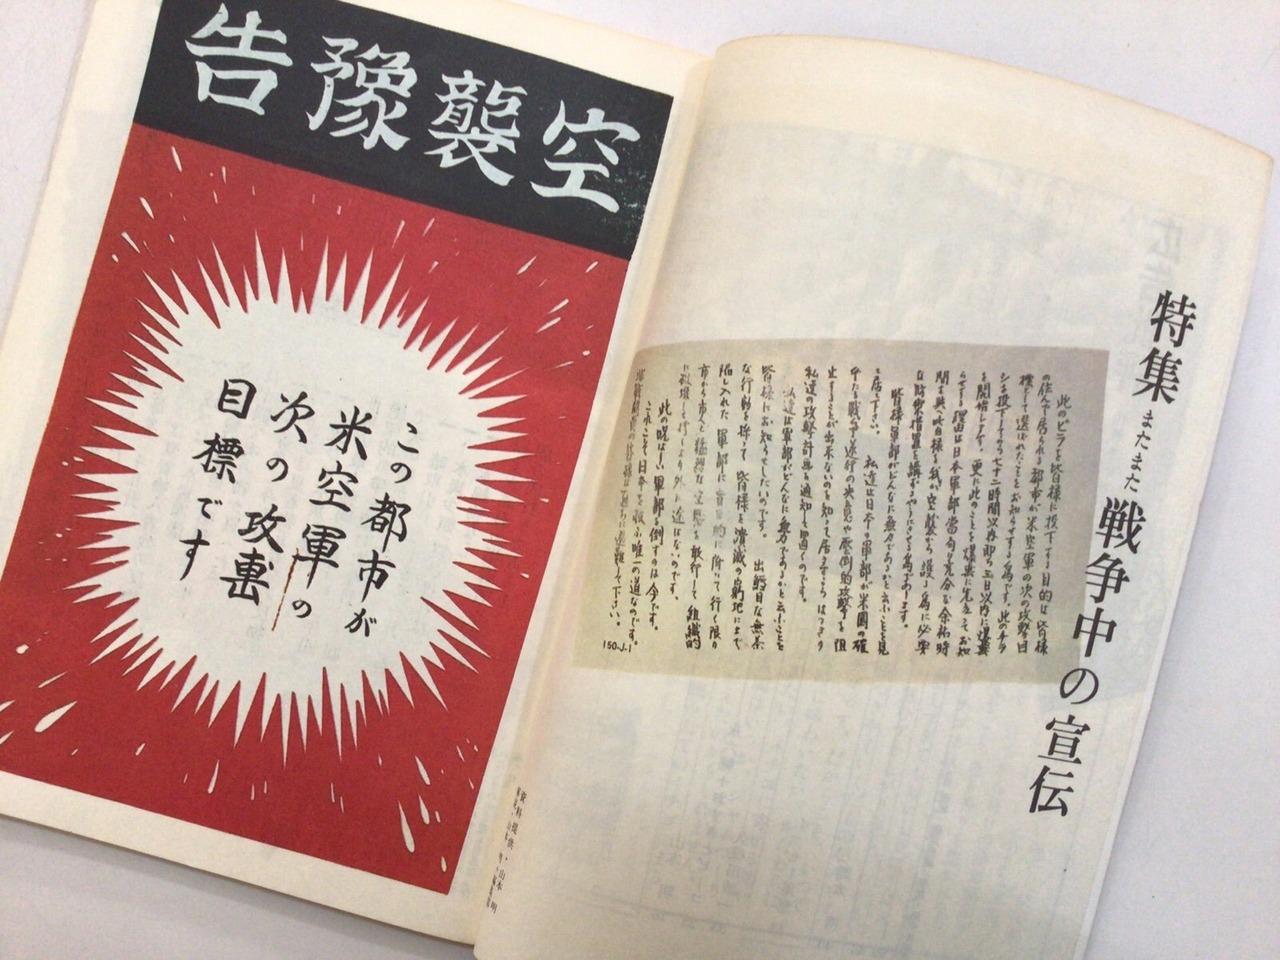 空襲豫告
この都市が
米空軍の
次の攻撃
目標です
特集またまた戦争中の宣伝
此のビラを皆様に投下する目的は皆様
の住んで居られる都市が米空軍の次の攻撃目
標として選ばれたことをお知らせする為です。此のチラ
シを投下してから七十二時間以内即ち三日以内に爆撃
を開始します。更に此のことを爆撃に先立ってお知
らせする理由は日本軍部当局に充分な余裕時
間を與へ皆様を我が空襲から護る為に必要
な防禦措置を講ずるやうにさせる為であります。
皆様軍部がどんなに無力であるかを云ふことを見
て居て下さい。 私達は日本の軍部が米国の確
乎たる戦争遂行の決意や圧倒的攻撃を阻
止することが出来ないのを知って居るからはっきり
私達の攻撃計画を通知して置くのです。
私達は軍部がどんなに無力であるかと云ふことを
皆様にお知らせしたいのです。 出鱈目な無茶
な行動を採って 皆様を潰滅の窮地にまで
陥し入れた軍部に盲目的に附いて行く限り
市から市へと猛烈な空襲を敢行して組織的
に破壊して行くより外に途はないのです。
此の呪はしい軍部を倒すのは今です。
これこそ日本を救ふ唯一の道なのです。
皆様は直ちに避難して下さい。
150-J-1
資料提供・山本 明